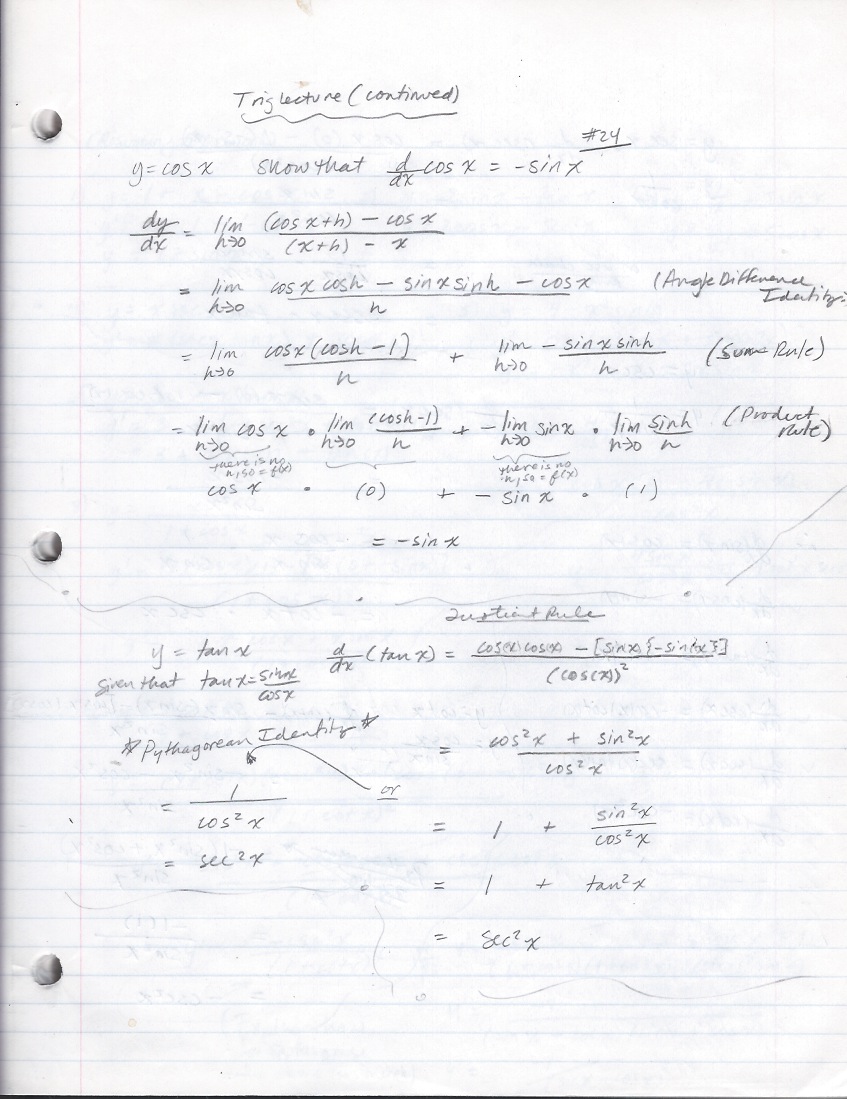 Trig lecture (continued)
#24
y = cos x show that d/dx cos x = -sin x
dy/dx = lim h→0 (cos x+h) - cos x / (x+h) - x
= lim h→0 cos x cosh - sin x sinh - cos x / h (Angle Difference Identity)
= lim h→0 cosx (cosh - 1) / h + lim h→0 - sin x sinh / h (Sum Rule)
= lim h→0 cos x • lim h→0 (cosh-1) / h + - lim h→0 sin x • lim h→0 sinh / h (Product Rule)
there is no h, so = f(x) there is no h, so = f(x)
cos x • (0) + - sin x • (1)
= - sin x
Quotient Rule
y = tan x d/dx (tan x) = cos(x) cos(x) - [sin(x) {-sin(x)}] / (cos(x))²
given that tan x = sin x / cos x
*Pythagorean Identity*
= cos²x + sin²x / cos²x
= 1 / cos²x
or
= 1 + sin²x / cos²x
= sec²x
= 1 + tan²x
= sec²x